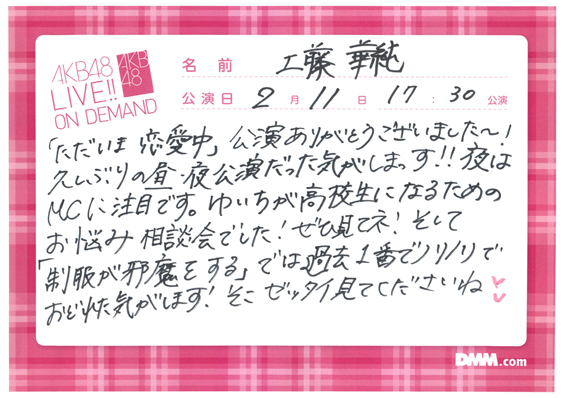 AKB48
LIVE!!
ON DEMAND
AKB
48
名前 工藤 華純
公演日 2月11日 17:30公演
「ただいま 恋愛中」公演ありがとうございました〜!
久しぶりの昼・夜公演だった気がしまっす!!夜は
MCに注目です。ゆいちが高校生になるための
お悩み相談会でした!ぜひ見てネ!そして
「制服が邪魔をする」では過去1番でノリノリで
おどれた気がします!そこゼッタイ見てくださいね
DMM.com